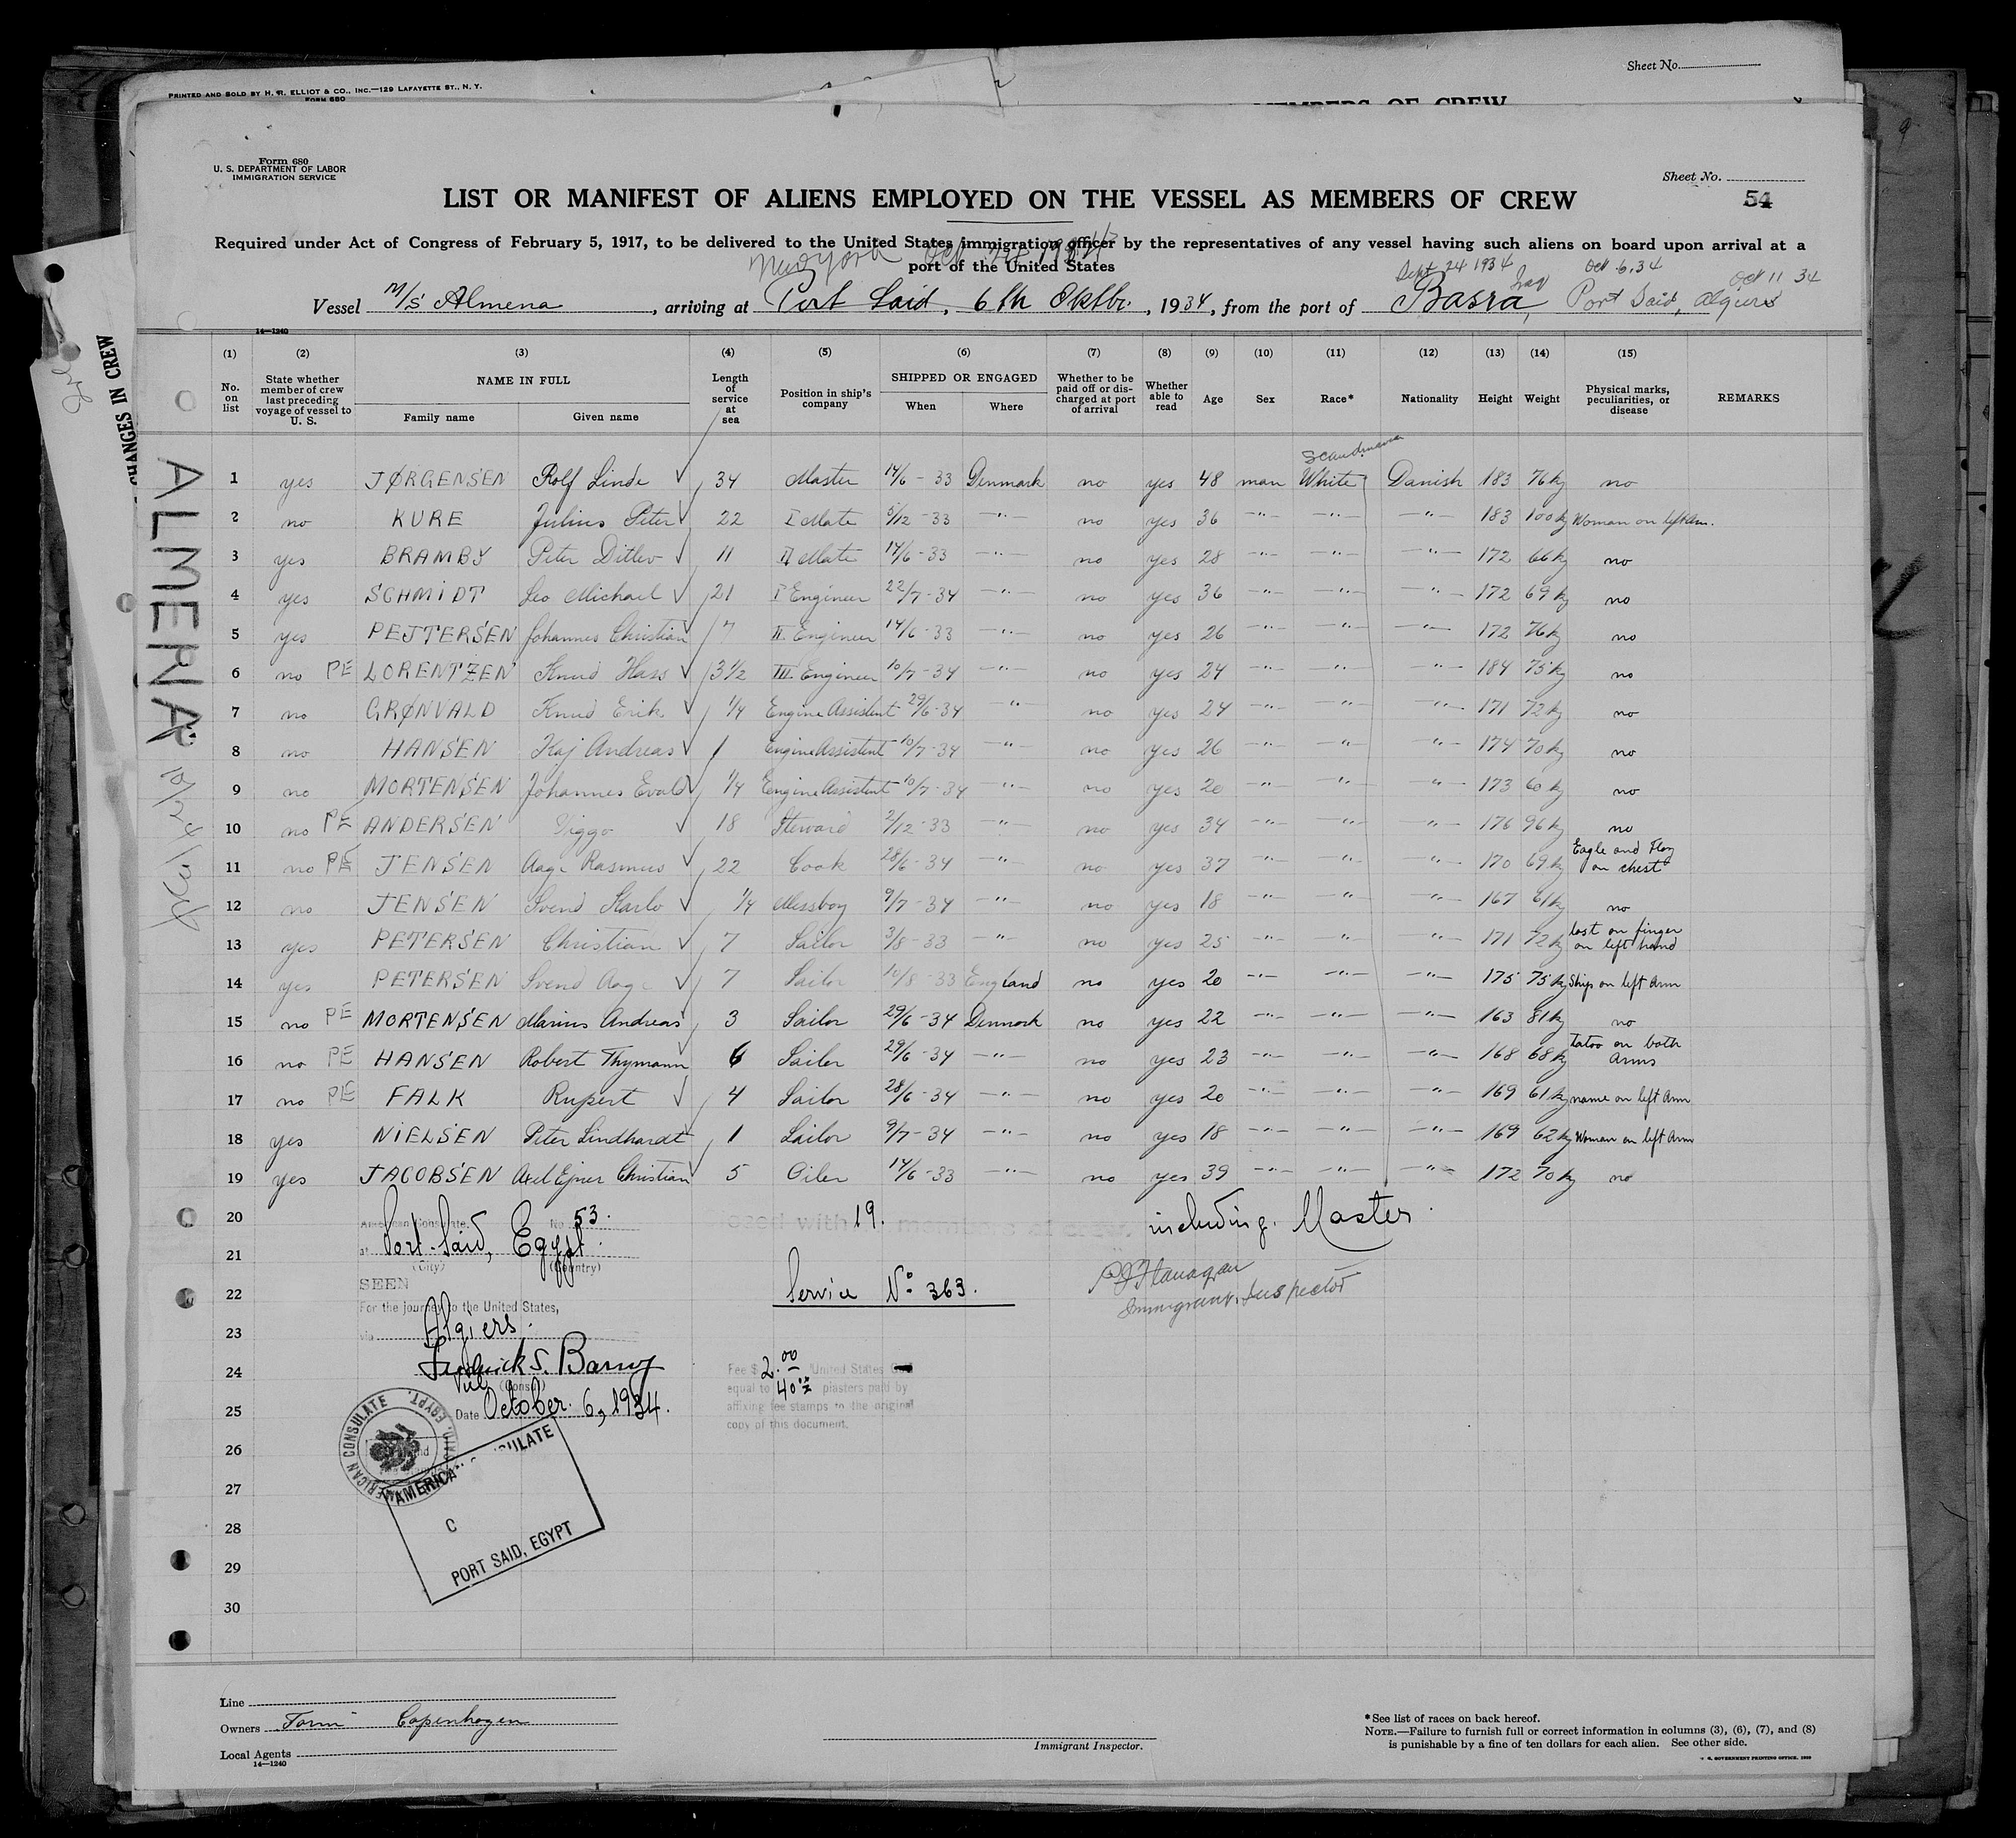 Sheet No.
PRINTED AND SOLD BY H. R. ELLIOT & CO., INC.—129 LAFAYETTE ST., N. Y.
FORM 680
MEMBERS OF CREW
Form 680
U. S. DEPARTMENT OF LABOR
IMMIGRATION SERVICE
Sheet No.
54
LIST OR MANIFEST OF ALIENS EMPLOYED ON THE VESSEL AS MEMBERS OF CREW
Required under Act of Congress of February 5, 1917, to be delivered to the United States immigration officer by the representatives of any vessel having such aliens on board upon arrival at a
port of the United States
New York Oct 24 1934
Sept 24 1934 Oct 6, 34 Oct 11 34
Vessel M/S Almena, arriving at Port Said, 6th Oktbr., 1934, from the port of Basra, Port Said, Algiers
14—1240
CHANGES IN CREW
ALMENA
10/24/34
(1) (2) (3) (4) (5) (6) (7) (8) (9) (10) (11) (12) (13) (14) (15)
No. on list
State whether member of crew last preceding voyage of vessel to U. S.
NAME IN FULL
Family name Given name
Length of service at sea
Position in ship's company
SHIPPED OR ENGAGED
When Where
Whether to be paid off or discharged at port of arrival
Whether able to read
Age Sex Race* Nationality Height Weight
Physical marks, peculiarities, or disease
REMARKS
Scandinavian
1 yes JØRGENSEN Rolf Linde √ 34 Master 14/6 - 33 Denmark no yes 48 man White Danish 183 76 kg no
2 no KURE Julius Peter √ 22 I Mate 5/12 - 33 —"— no yes 36 —"— —"— —"— 183 100 kg Woman on left Arm.
3 yes BRAMBY Peter Ditlev √ 11 II Mate 14/6 - 33 —"— no yes 28 —"— —"— —"— 172 66 kg no
4 yes SCHMIDT Leo Michael √ 21 I Engineer 22/7 - 34 —"— no yes 36 —"— —"— —"— 172 69 kg no
5 yes PEJTERSEN Johannes Christian √ 7 II. Engineer 14/6 - 33 —"— no yes 26 —"— —"— —"— 172 76 kg no
6 no PE LORENTZEN Knud Hass √ 3 1/2 III. Engineer 10/7 - 34 —"— no yes 24 —"— —"— —"— 184 75 kg no
7 no GRØNVALD Knud Erik √ 1/4 Engine Assistent 29/6 - 34 —"— no yes 24 —"— —"— —"— 171 72 kg no
8 no HANSEN Kaj Andreas √ 1 Engine Assistent 10/7 - 34 —"— no yes 26 —"— —"— —"— 174 70 kg no
9 no MORTENSEN Johannes Evald √ 1/4 Engine Assistent 10/7 - 34 —"— no yes 20 —"— —"— —"— 173 60 kg no
10 no PE ANDERSEN Viggo √ 18 Steward 2/12 - 33 —"— no yes 34 —"— —"— —"— 176 96 kg no
11 no PE JENSEN Aage Rasmus √ 22 Cook 28/6 - 34 —"— no yes 37 —"— —"— —"— 170 69 kg Eagle and Flag on chest
12 no JENSEN Svend Karlo √ 1/4 Messboy 9/7 - 34 —"— no yes 18 —"— —"— —"— 167 61 kg no
13 yes PETERSEN Christian √ 7 Sailor 3/8 - 33 —"— no yes 25 —"— —"— —"— 171 72 kg lost on finger on left hand
14 yes PETERSEN Svend Aage √ 7 Sailor 10/8 - 33 England no yes 20 —"— —"— —"— 175 75 kg Ship on left Arm
15 no PE MORTENSEN Marius Andreas √ 3 Sailor 29/6 - 34 Denmark no yes 22 —"— —"— —"— 163 81 kg no
16 no PE HANSEN Robert Thymann √ 6 Sailor 29/6 - 34 —"— no yes 23 —"— —"— —"— 168 68 kg Tatoo on both Arms
17 no PE FALK Rupert √ 4 Sailor 28/6 - 34 —"— no yes 20 —"— —"— —"— 169 61 kg name on left Arm
18 yes NIELSEN Peter Lindhardt √ 1 Sailor 9/7 - 34 —"— no yes 18 —"— —"— —"— 169 62 kg Woman on left Arm
19 yes JACOBSEN Axel Ejner Christian √ 5 Oiler 14/6 - 33 —"— no yes 39 —"— —"— —"— 172 70 kg no
20
21
22
23
24
25
26
27
28
29
30
American Consulate, No. 53.
at Port-Said, Egypt.
(City) (Country)
SEEN
For the journey to the United States,
via Algiers.
Frederick S. Barny
Vice (Consul)
Date October 6, 1934.
with 19. members of crew, including Master.
Service No 363.
P J Flanagan
Immigrant Inspector
Fee $ 2.00 United States
equal to 40 piasters paid by
affixing fee stamps to the original
copy of this document.
AMERICAN CONSULATE
EGYPT.
AMERICAN CONSULATE
PORT SAID, EGYPT
Line
Owners Torm Copenhagen
Local Agents
14—1240
Immigrant Inspector.
*See list of races on back hereof.
NOTE.—Failure to furnish full or correct information in columns (3), (6), (7), and (8)
is punishable by a fine of ten dollars for each alien. See other side.
U. S. GOVERNMENT PRINTING OFFICE.